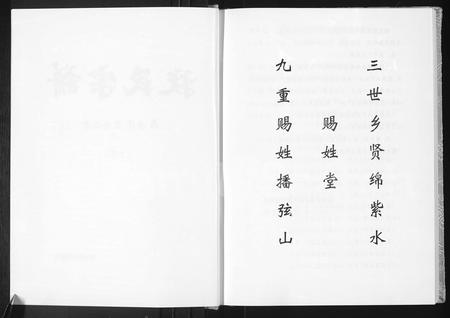 三世乡贤绵紫水
赐姓堂
九重赐姓播弦山